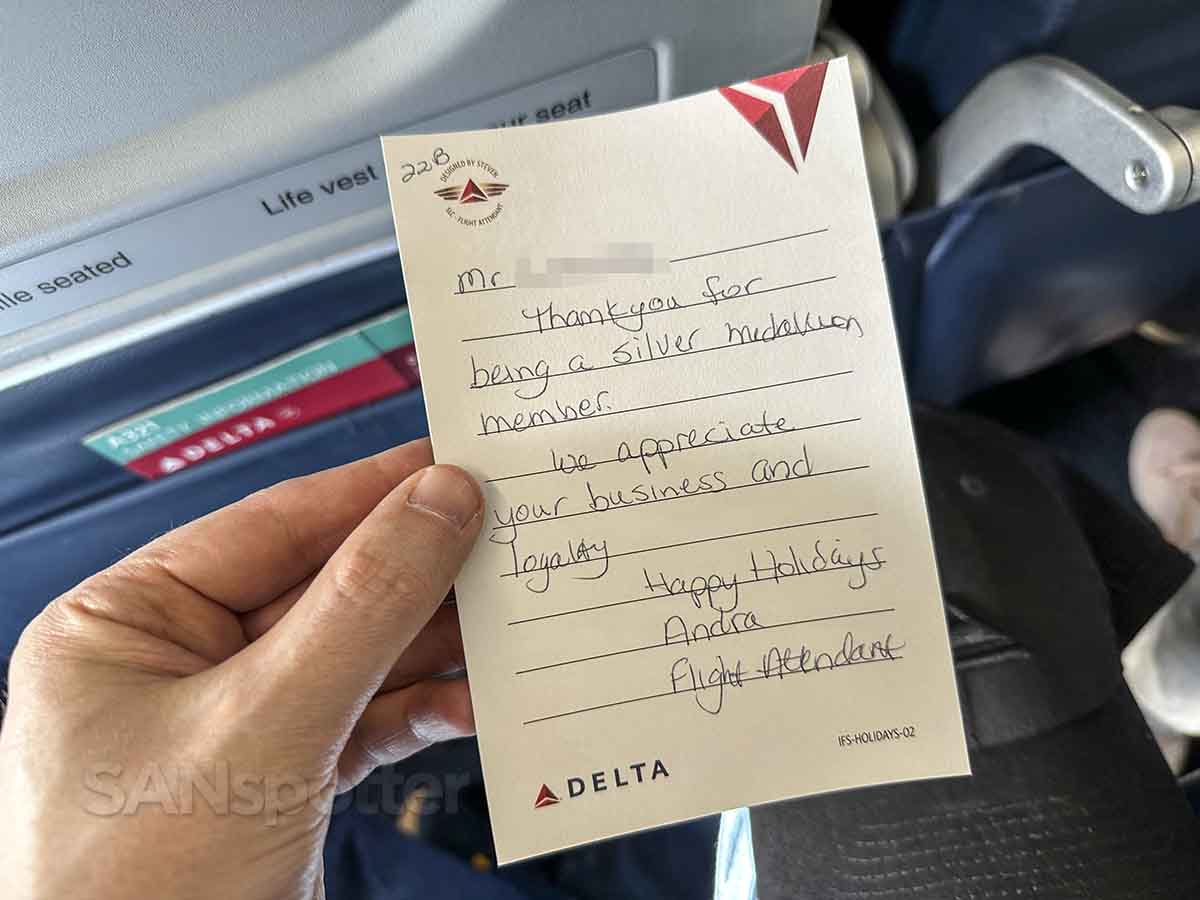 ur seat
Life vest
ile seated
A321
SAFETY INFORMATION
DELTA
22B
DESIGNED BY STEVEN
SLC - FLIGHT ATTENDANT
Mr
Thankyou for
being a silver medallion
member.
We appreciate
your business and
loyalty
Happy Holidays
Andra
Flight Attendant
IFS-HOLIDAYS-02
DELTA
SANspotter